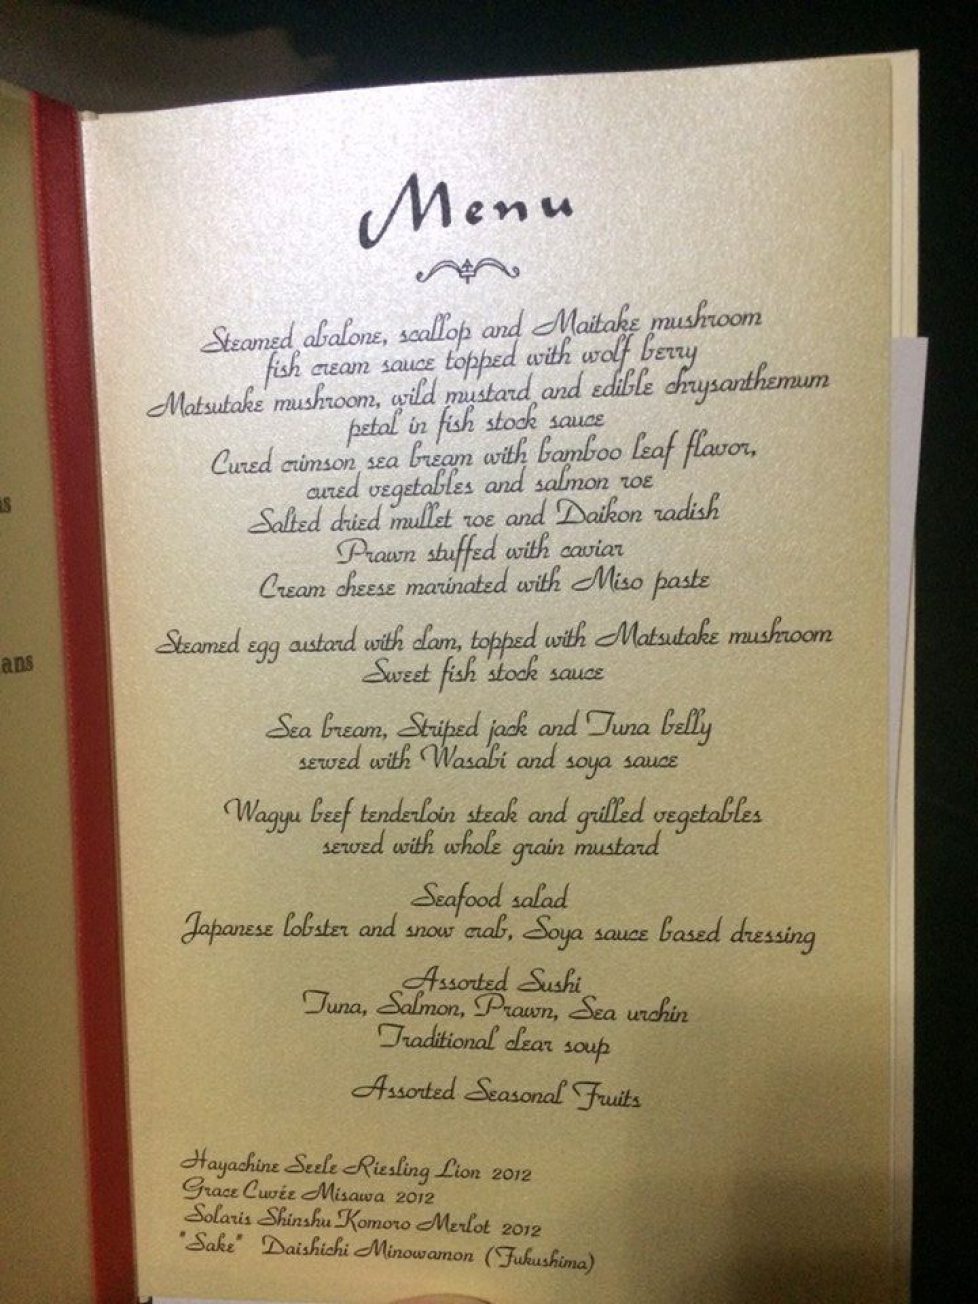 Menu
Steamed abalone, scallop and Maitake mushroom
fish cream sauce topped with wolf berry
Matsutake mushroom, wild mustard and edible chrysanthemum
petal in fish stock sauce
Cured crimson sea bream with bamboo leaf flavor,
cured vegetables and salmon roe
Salted dried mullet roe and Daikon radish
Prawn stuffed with caviar
Cream cheese marinated with Miso paste
Steamed egg custard with clam, topped with Matsutake mushroom
Sweet fish stock sauce
Sea bream, Striped jack and Tuna belly
served with Wasabi and soya sauce
Wagyu beef tenderloin steak and grilled vegetables
served with whole grain mustard
Seafood salad
Japanese lobster and snow crab, Soya sauce based dressing
Assorted Sushi
Tuna, Salmon, Prawn, Sea urchin
Traditional clear soup
Assorted Seasonal Fruits
Hayachine Seele Riesling Lion 2012
Grace Cuvée Misawa 2012
Solaris Shinshu Komoro Merlot 2012
"Sake" Daishichi Minowamon (Fukushima)